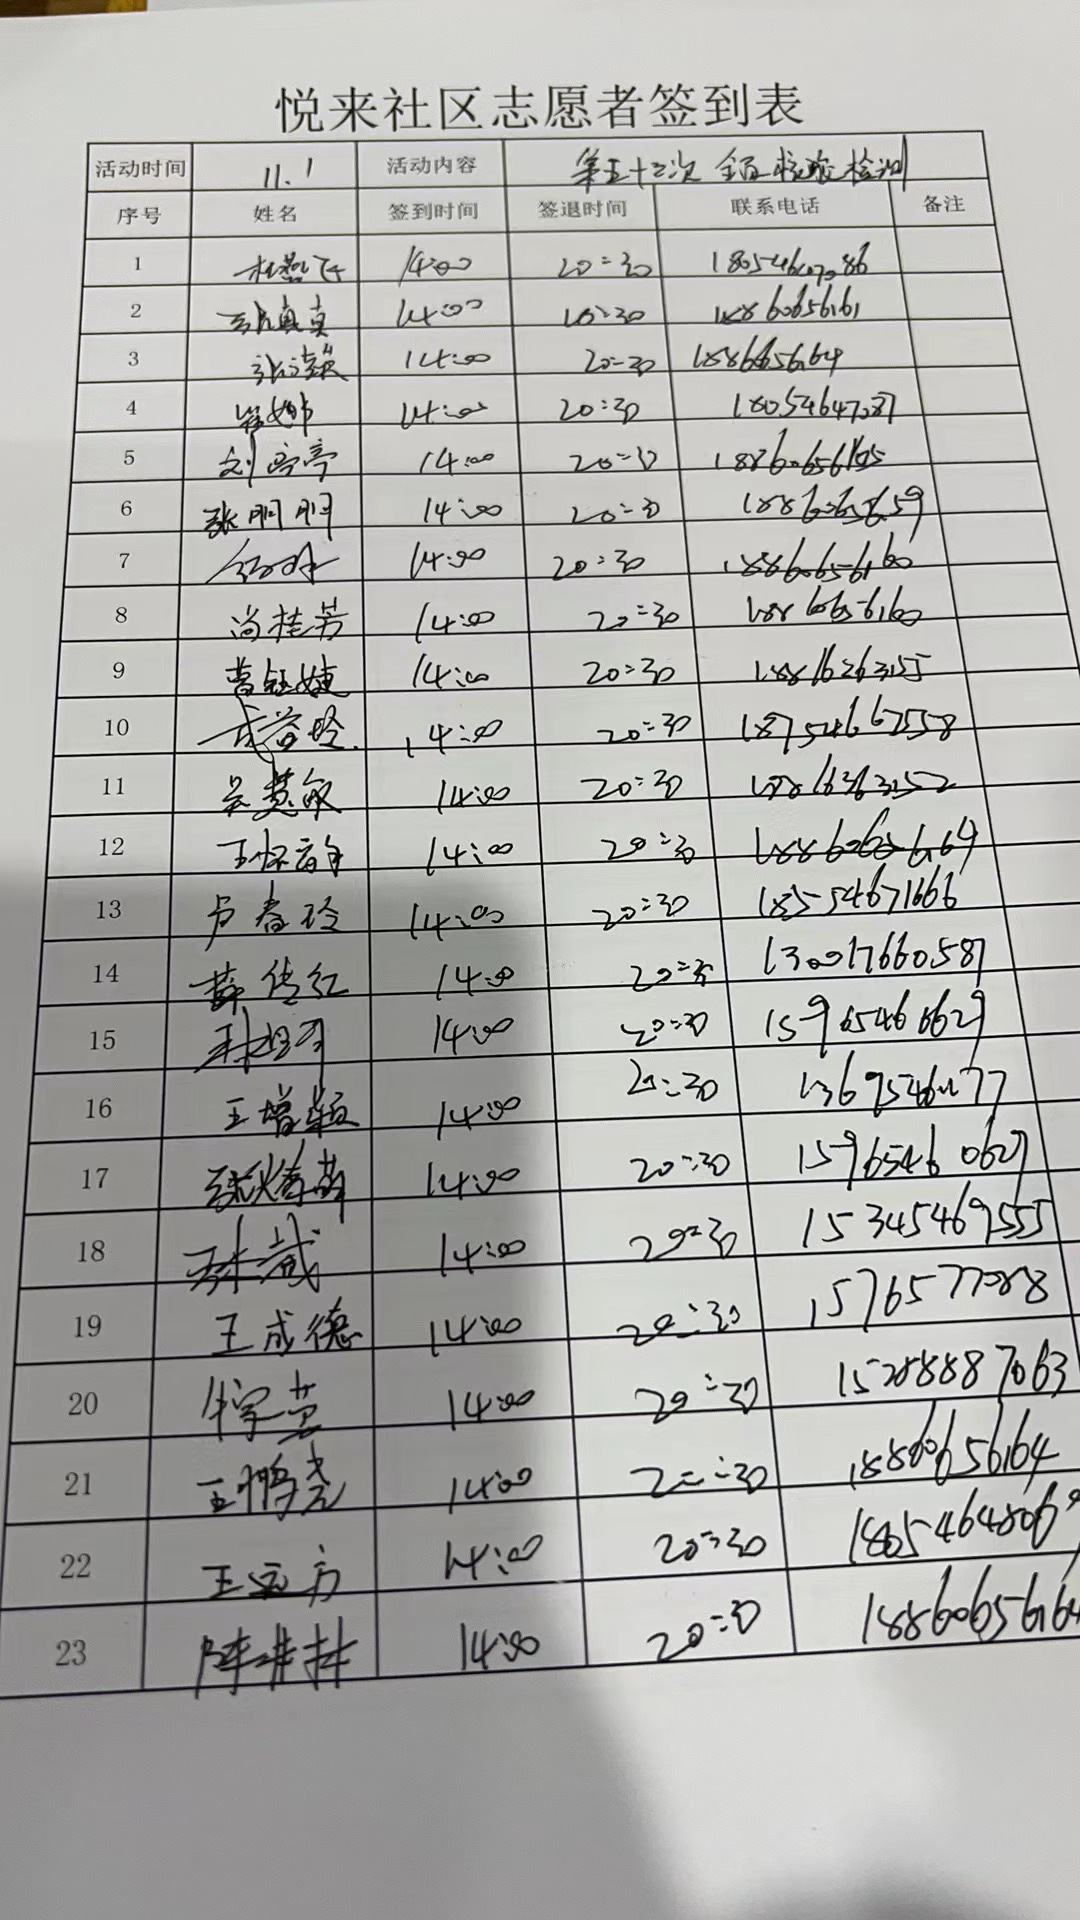 悦来社区志愿者签到表
活动时间 11.1 活动内容 第五十三次 全员核酸检测
序号 姓名 签到时间 签退时间 联系电话 备注
1 14:00 20:30 18054647086
2 张真真 14:00 20:30 18860656161
3 14:00 20:30
4 14:00 20:30 18054647087
5 刘亭亭 14:00 20:30
6 张明明 14:00 20:30
7 14:00 20:30 18860656160
8 尚桂芳 14:00 20:30 18860656160
9 曹钰婕 14:00 20:30 18816263155
10 14:00 20:30 18754667558
11 吴慧敏 14:00 20:30
12 14:00 20:30 18860656164
13 卢春玲 14:00 20:30 18554671666
14 薛传红 14:00 20:30 13001766058
15 14:00 20:30 15965460629
16 王增颖 14:00 20:30
17 14:00 20:30 15965460629
18 14:00 20:30 15345469555
19 王成德 14:00 20:30
20 14:00 20:30 15288887063
21 王鹏尧 14:00 20:30 18860656164
22 王远方 14:00 20:30
23 14:00 20:30 18860656164